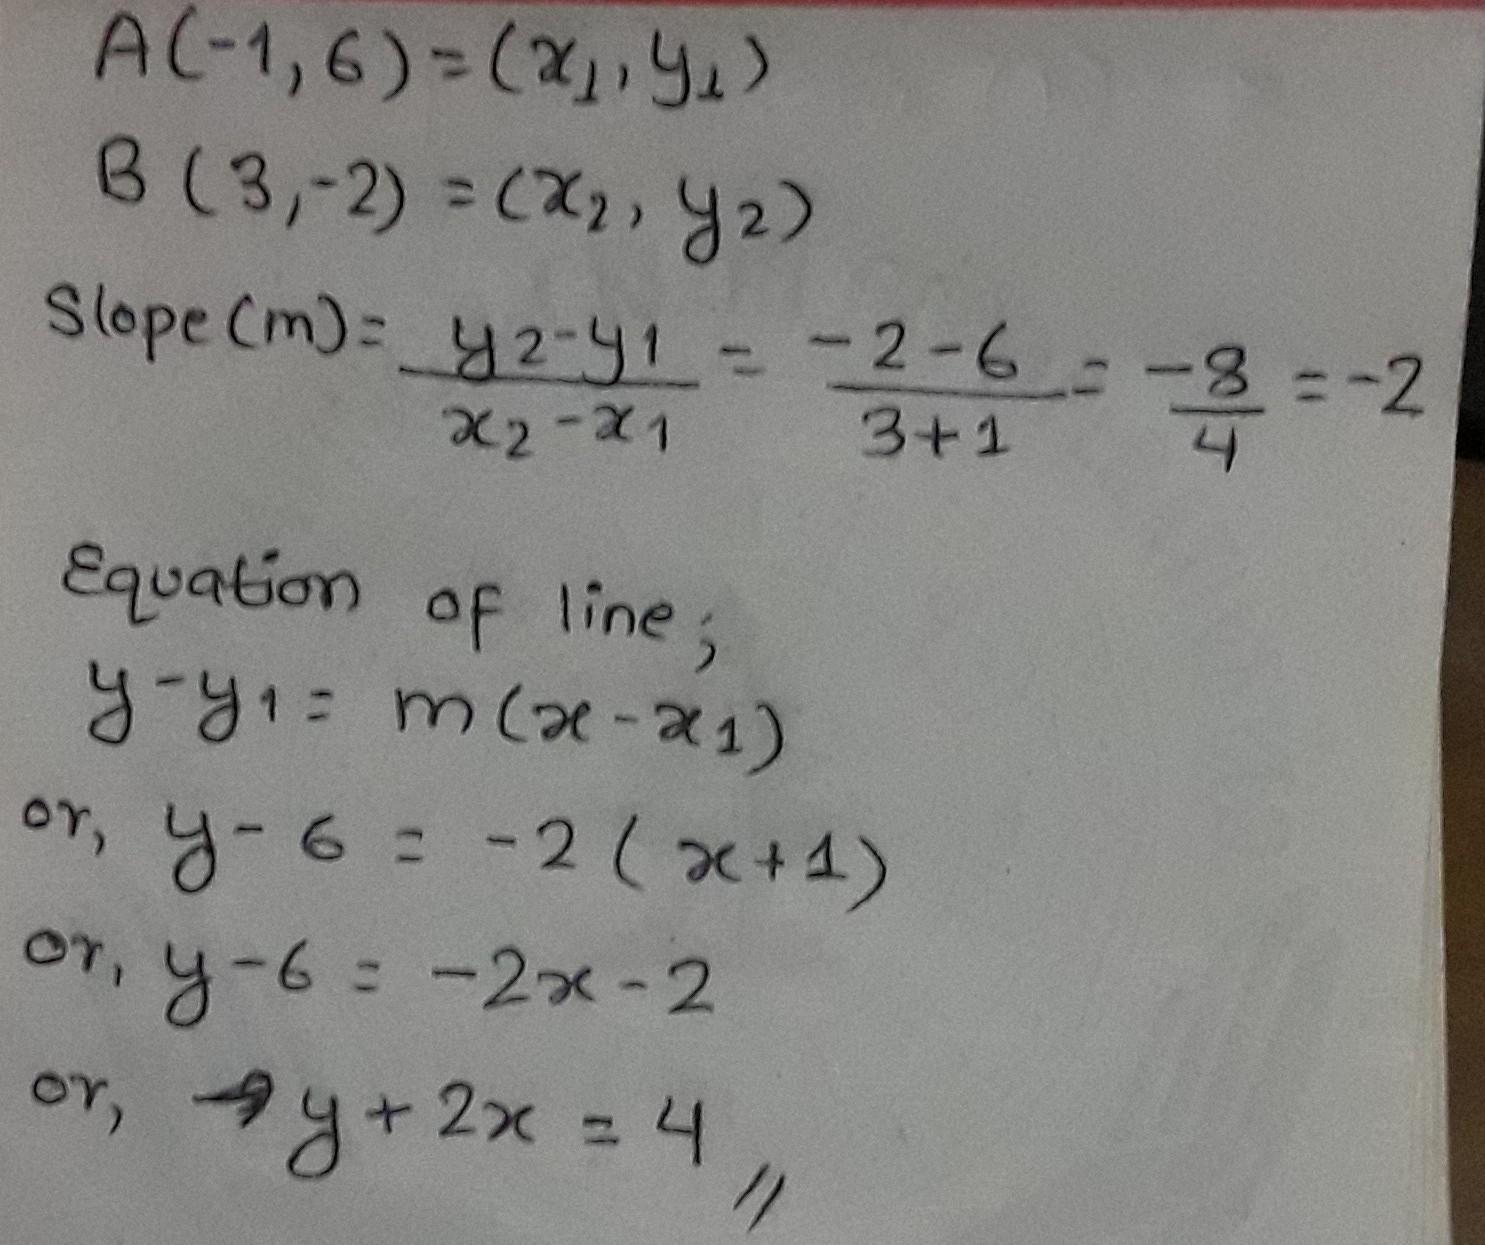 A(-1,6)=(x₁,y₁)
B(3,-2)=(x₂,y₂)
Slope(m)= y₂-y₁/x₂-x₁ = -2-6/3+1 = -8/4 = -2
Equation of line;
y-y₁= m(x-x₁)
or, y-6 = -2(x+1)
or, y-6 = -2x-2
or, y+2x = 4 //